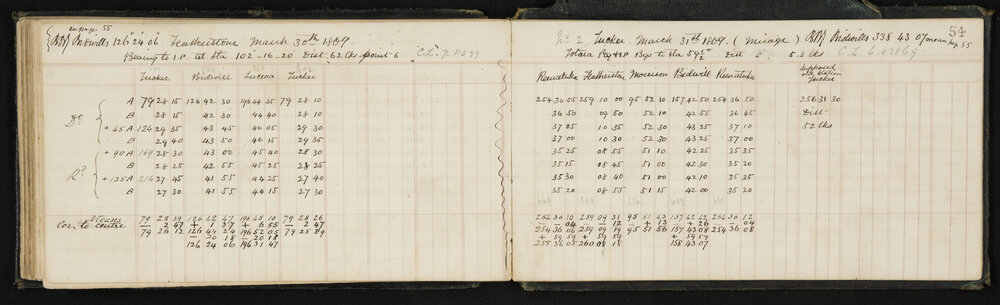 on page 55
Bidwills 126° 24' 06" Featherstone March 30th 1869
Bearing to I.P. at the 102°-16-20 Dist. 62 lks point 6
Tucker Bidwill Lucena Tucker
Do A 79 28 15 126 42 30 196 44 35 79 28 10
B 28 15 42 30 44 40 28 10
+45 A 124 29 35 43 45 46 05 29 30
B 29 40 43 50 46 15 29 35
Ro +90 A 169 28 30 43 00 45 40 28 30
B 28 25 42 55 45 25 28 25
+135 A 214 27 45 41 55 44 25 27 40
B 27 30 41 55 44 15 27 30
Means 79 28 59 126 42 47 196 45 10 79 28 26
Cor. to centre — 2 47 + 1 37 + 6 55 — 2 47
79 26 12 126 44 24 196 52 05 79 25 39
— 20 18 — 20 18
126 24 06 196 31 47
54
No 2 Tucker March 31st 1869. (Mirage) Bidwills 338 43 07 mean pg. 55
Totara Peg & I.P. Bgs to the 59½° Dist 5.3 lks
Remutaka Featherston Morrison Bidwill Remutaka
254 36 55 259 10 00 95 52 10 157 42 50 254 36 50
36 50 09 50 52 10 42 55 36 45
37 05 10 30 52 30 43 25 37 10
37 00 10 30 52 30 43 25 37 00
35 25 08 55 51 10 42 25 35 35
35 15 08 45 51 00 42 30 35 20
35 30 08 40 51 00 42 10 35 35
35 20 08 55 51 15 42 00 35 20
254 36 10 259 09 31 95 51 43 157 42 42 254 36 12
— 04 — 12 + 13 + 26 04
254 36 06 259 09 19 95 51 56 157 43 08 254 36 08
+ 59 59 + 59 59 + 59 59
255 36 05 260 09 18 158 43 07
Supposed
old Station
Tucker
256 31 30
Dist
52 lks